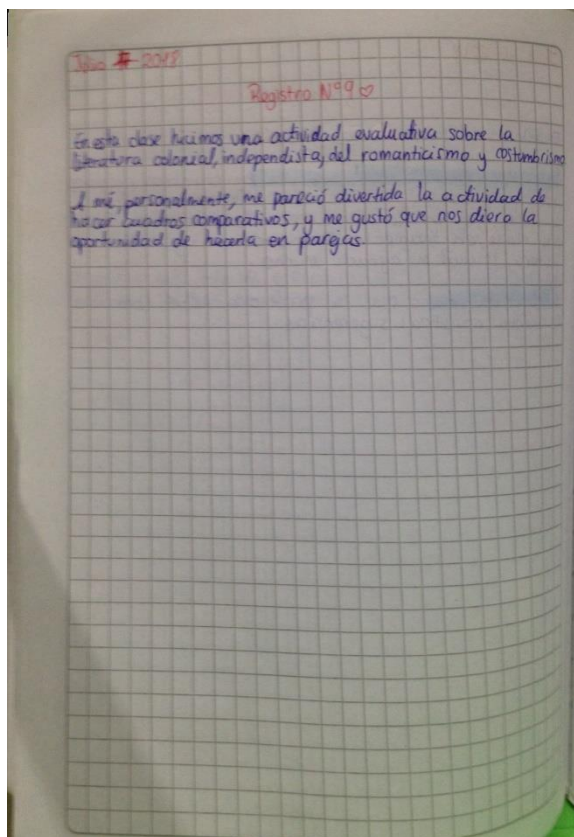 Julio 2018
Registro N°9 ♡
En esta clase hicimos una actividad evaluativa sobre la
literatura colonial, independista, del romanticismo y costumbrismo
A mí, personalmente, me pareció divertida la actividad de
hacer cuadros comparativos, y me gustó que nos diera la
oportunidad de hacerla en parejas.